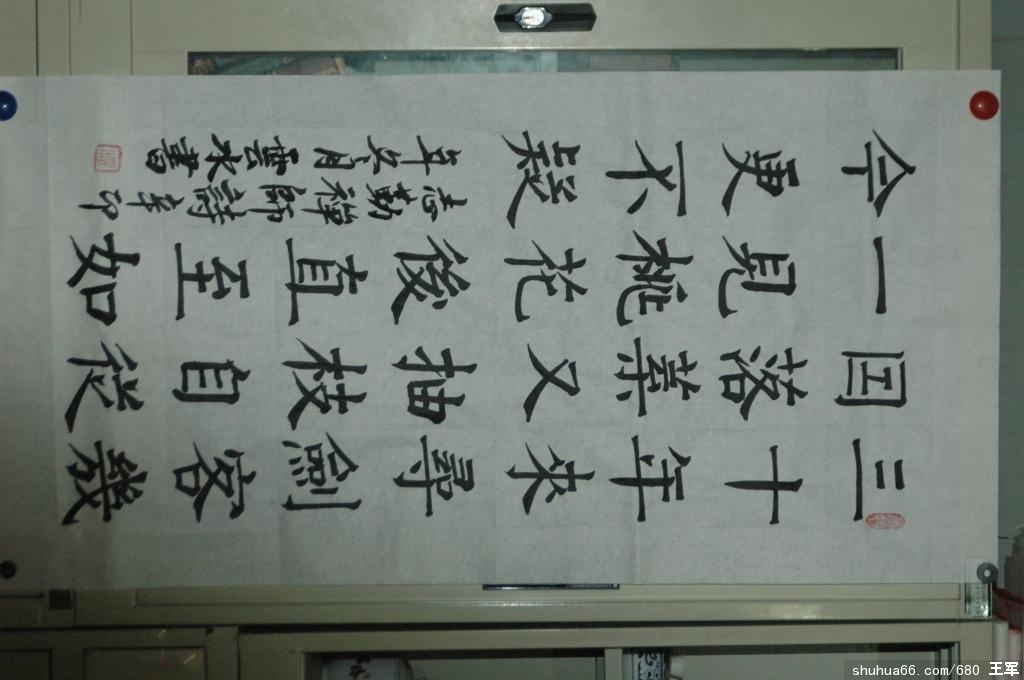 三十年來尋劍客幾
囬落葉又抽枝自從
一見桃花後直至如
今更不疑
志勤禪師詩辛卯
年冬月雲水書
shuhua66.com/680 王军